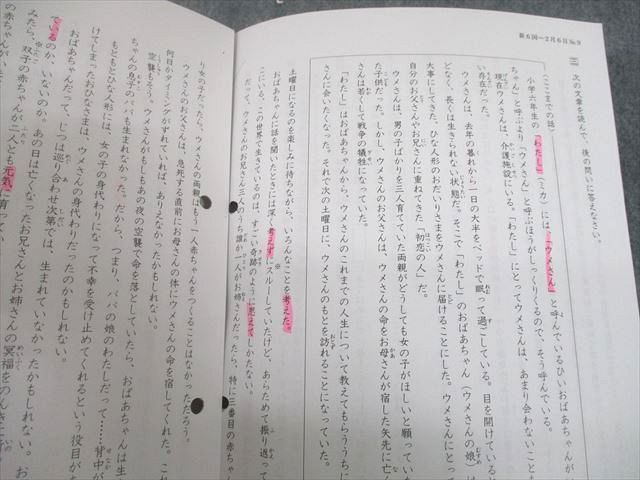 新6国ー2月6日№9
三 次の文章を読んで、後の問いに答えなさい。
〈ここまでの話〉
小学六年生の「わたし」（ミカ）には、「ウメさん」と呼んでいるひいおばあちゃんが
ちゃん」と呼ぶより「ウメさん」と呼ぶほうがしっくりくるので、そう呼んでいる。
現在ウメさんは、介護施設にいる。「わたし」にとってウメさんは、あまり会わないことも
い存在だった。
ウメさんは、去年の暮れから一日の大半をベッドで眠って過ごしている。目を開けていると
どなく、長くは生きられない状態だ。そこで「わたし」のおばあちゃん（ウメさんの娘）は
大事にしてきた、ひな人形のおだいりさまをウメさんに届けることにした。ウメさんにとって
自分のお父さんやお兄さんに重ねてきた「初恋の人」だ。
ウメさんは、男の子ばかりを三人育てていた両親がどうしても女の子がほしいと願ってい
た子供だった。しかし、ウメさんのお父さんは、ウメさんの命をお母さんが宿した矢先に亡く
さんは若くして戦争の犠牲になっていた。
「わたし」はおばあちゃんから、ウメさんのこれまでの人生について教えてもらううちに
さんに会いたくなった。それで次の土曜日に、ウメさんのもとを訪れることになっていた。
土曜日になるのを楽しみに待ちながら、いろんなことを考えた。
おばあちゃんに話を聞いたときには深く考えずにスルーしていたけど、あらためて振り返って
こにいる、この世界で生きているのは、すごい奇跡のように思えてしかたない。
だって、ウメさんのお兄さん三人のうち誰か一人がお姉さんだったら、特に三番目の赤ちゃん
り女の子だったら、ウメさんの両親はもう一人赤ちゃんをつくることはなかっただろう。
ウメさんのお父さんは、急死する直前にお母さんの体にウメさんの命を宿してくれた。これ
何日かタイミングがずれていれば、ありえなかったかもしれない。
空襲もそう。ウメさんがもしもあの夜の空襲で命を落としていたら、おばあちゃんは生
ちゃんの息子のパパも生まれなかった。だから、つまり、パパの娘のわたしだって……背中が
もともとひな人形には、女の子の身代わりになって不幸を受け止めてくれるという役目が
けてしまったおひなさまは、ウメさんの身代わりだったのかもしれない。
おばあちゃんだって、じつは巡り合わせ次第では、生まれていなかったかもしれない。お
みたら、双子の赤ちゃん
ているのか、いないのか。あの日は亡くなったお兄さんとお姉さんの冥福をのんき
の赤ちゃんが二人とも元気に育ってい